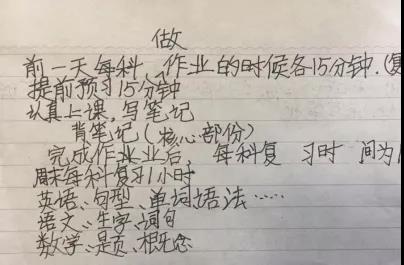 做
前一天每科 作业的时候各15分钟.(复
提前预习15分钟
认真上课,写笔记
背笔记(核心部份)
完成作业业后, 每科复 习时 间为
周末每科复习1小时
英语、句型、单词语法……
语文、生字、词句
数学、是页、概念